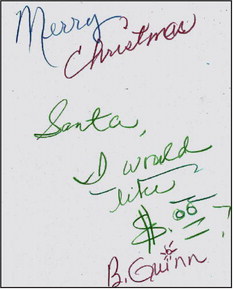 Merry
Christmas
Santa,
I would
like
$.00?
B. Guinn